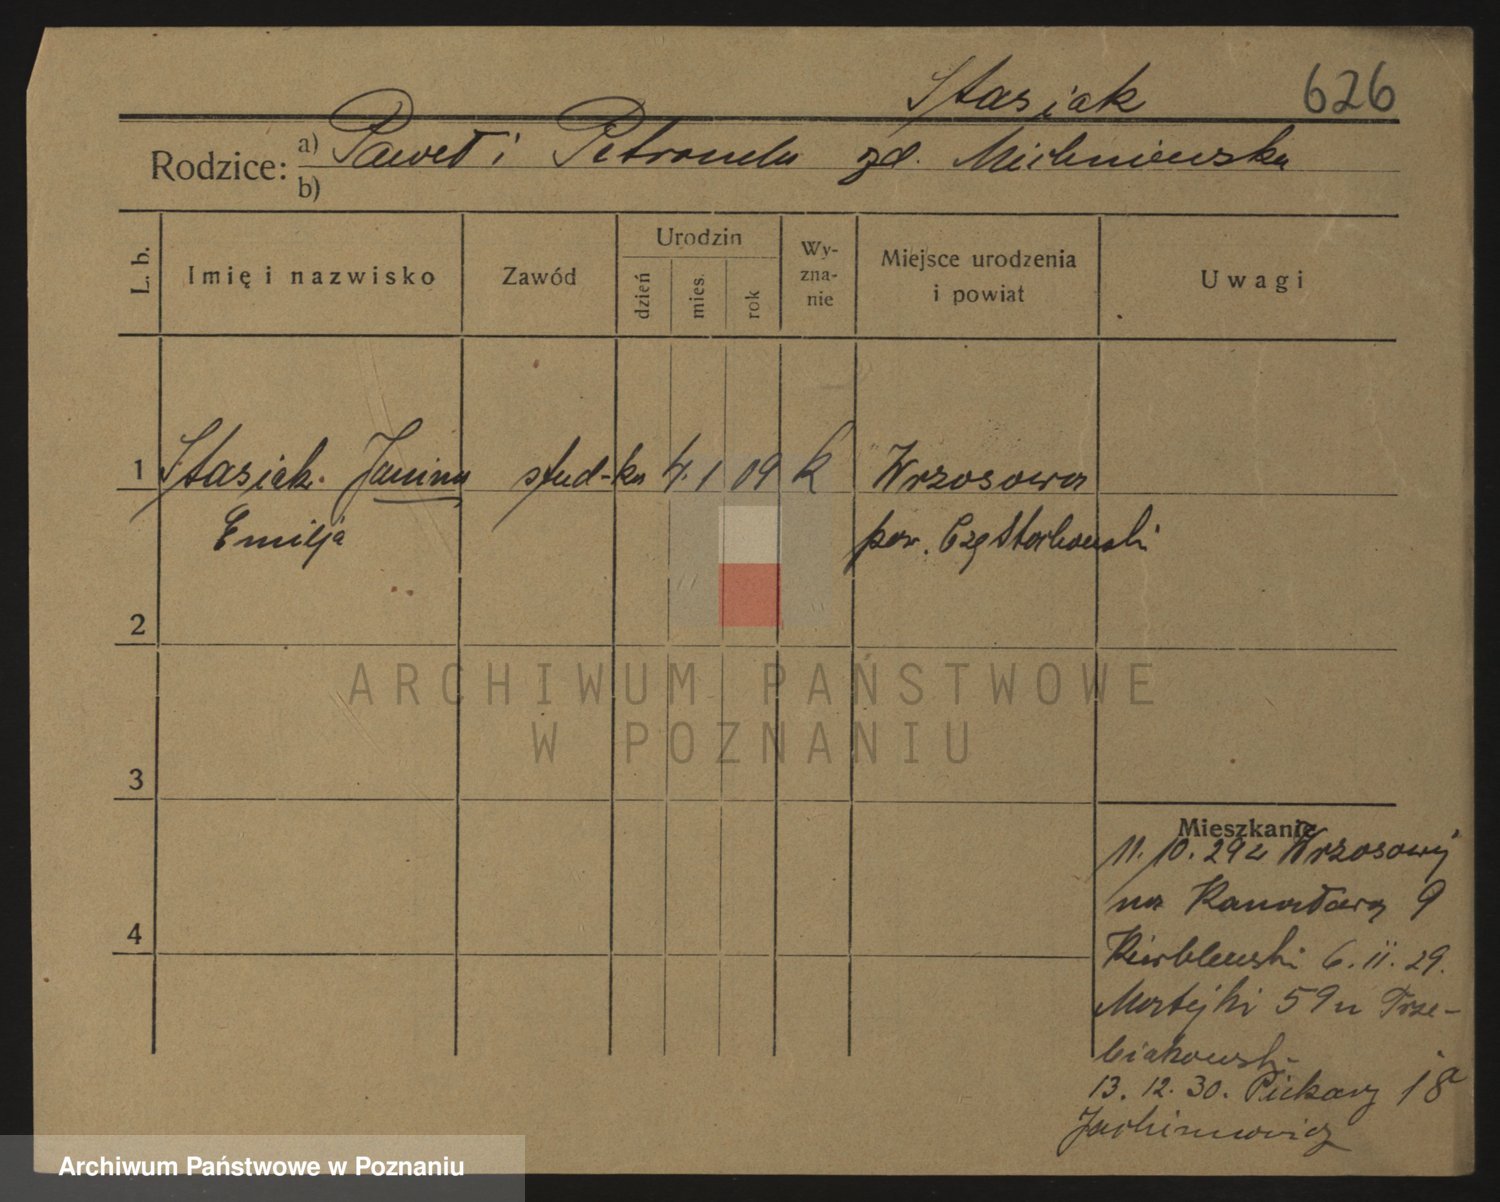 Stasiak 626
Rodzice: a) Paweł i Petronela zd. Michniewska
b)
L. b. Imię i nazwisko Zawód Urodzin dzień mies. rok Wy-zna-nie Miejsce urodzenia i powiat Uwagi
1 Stasiak Janina stud-ka 4. 1 09 k Wrzosowa
Emilja pow. Częstochowski
2
ARCHIWUM PAŃSTWOWE
W POZNANIU
3
Mieszkanie
11. 10. 29 z Wrzosowy
na 9
4
6. 11. 29.
Matejki 59 u Trze-
biakowski
13. 12. 30. Piekary 18a
Jachimowicz
Archiwum Państwowe w Poznaniu